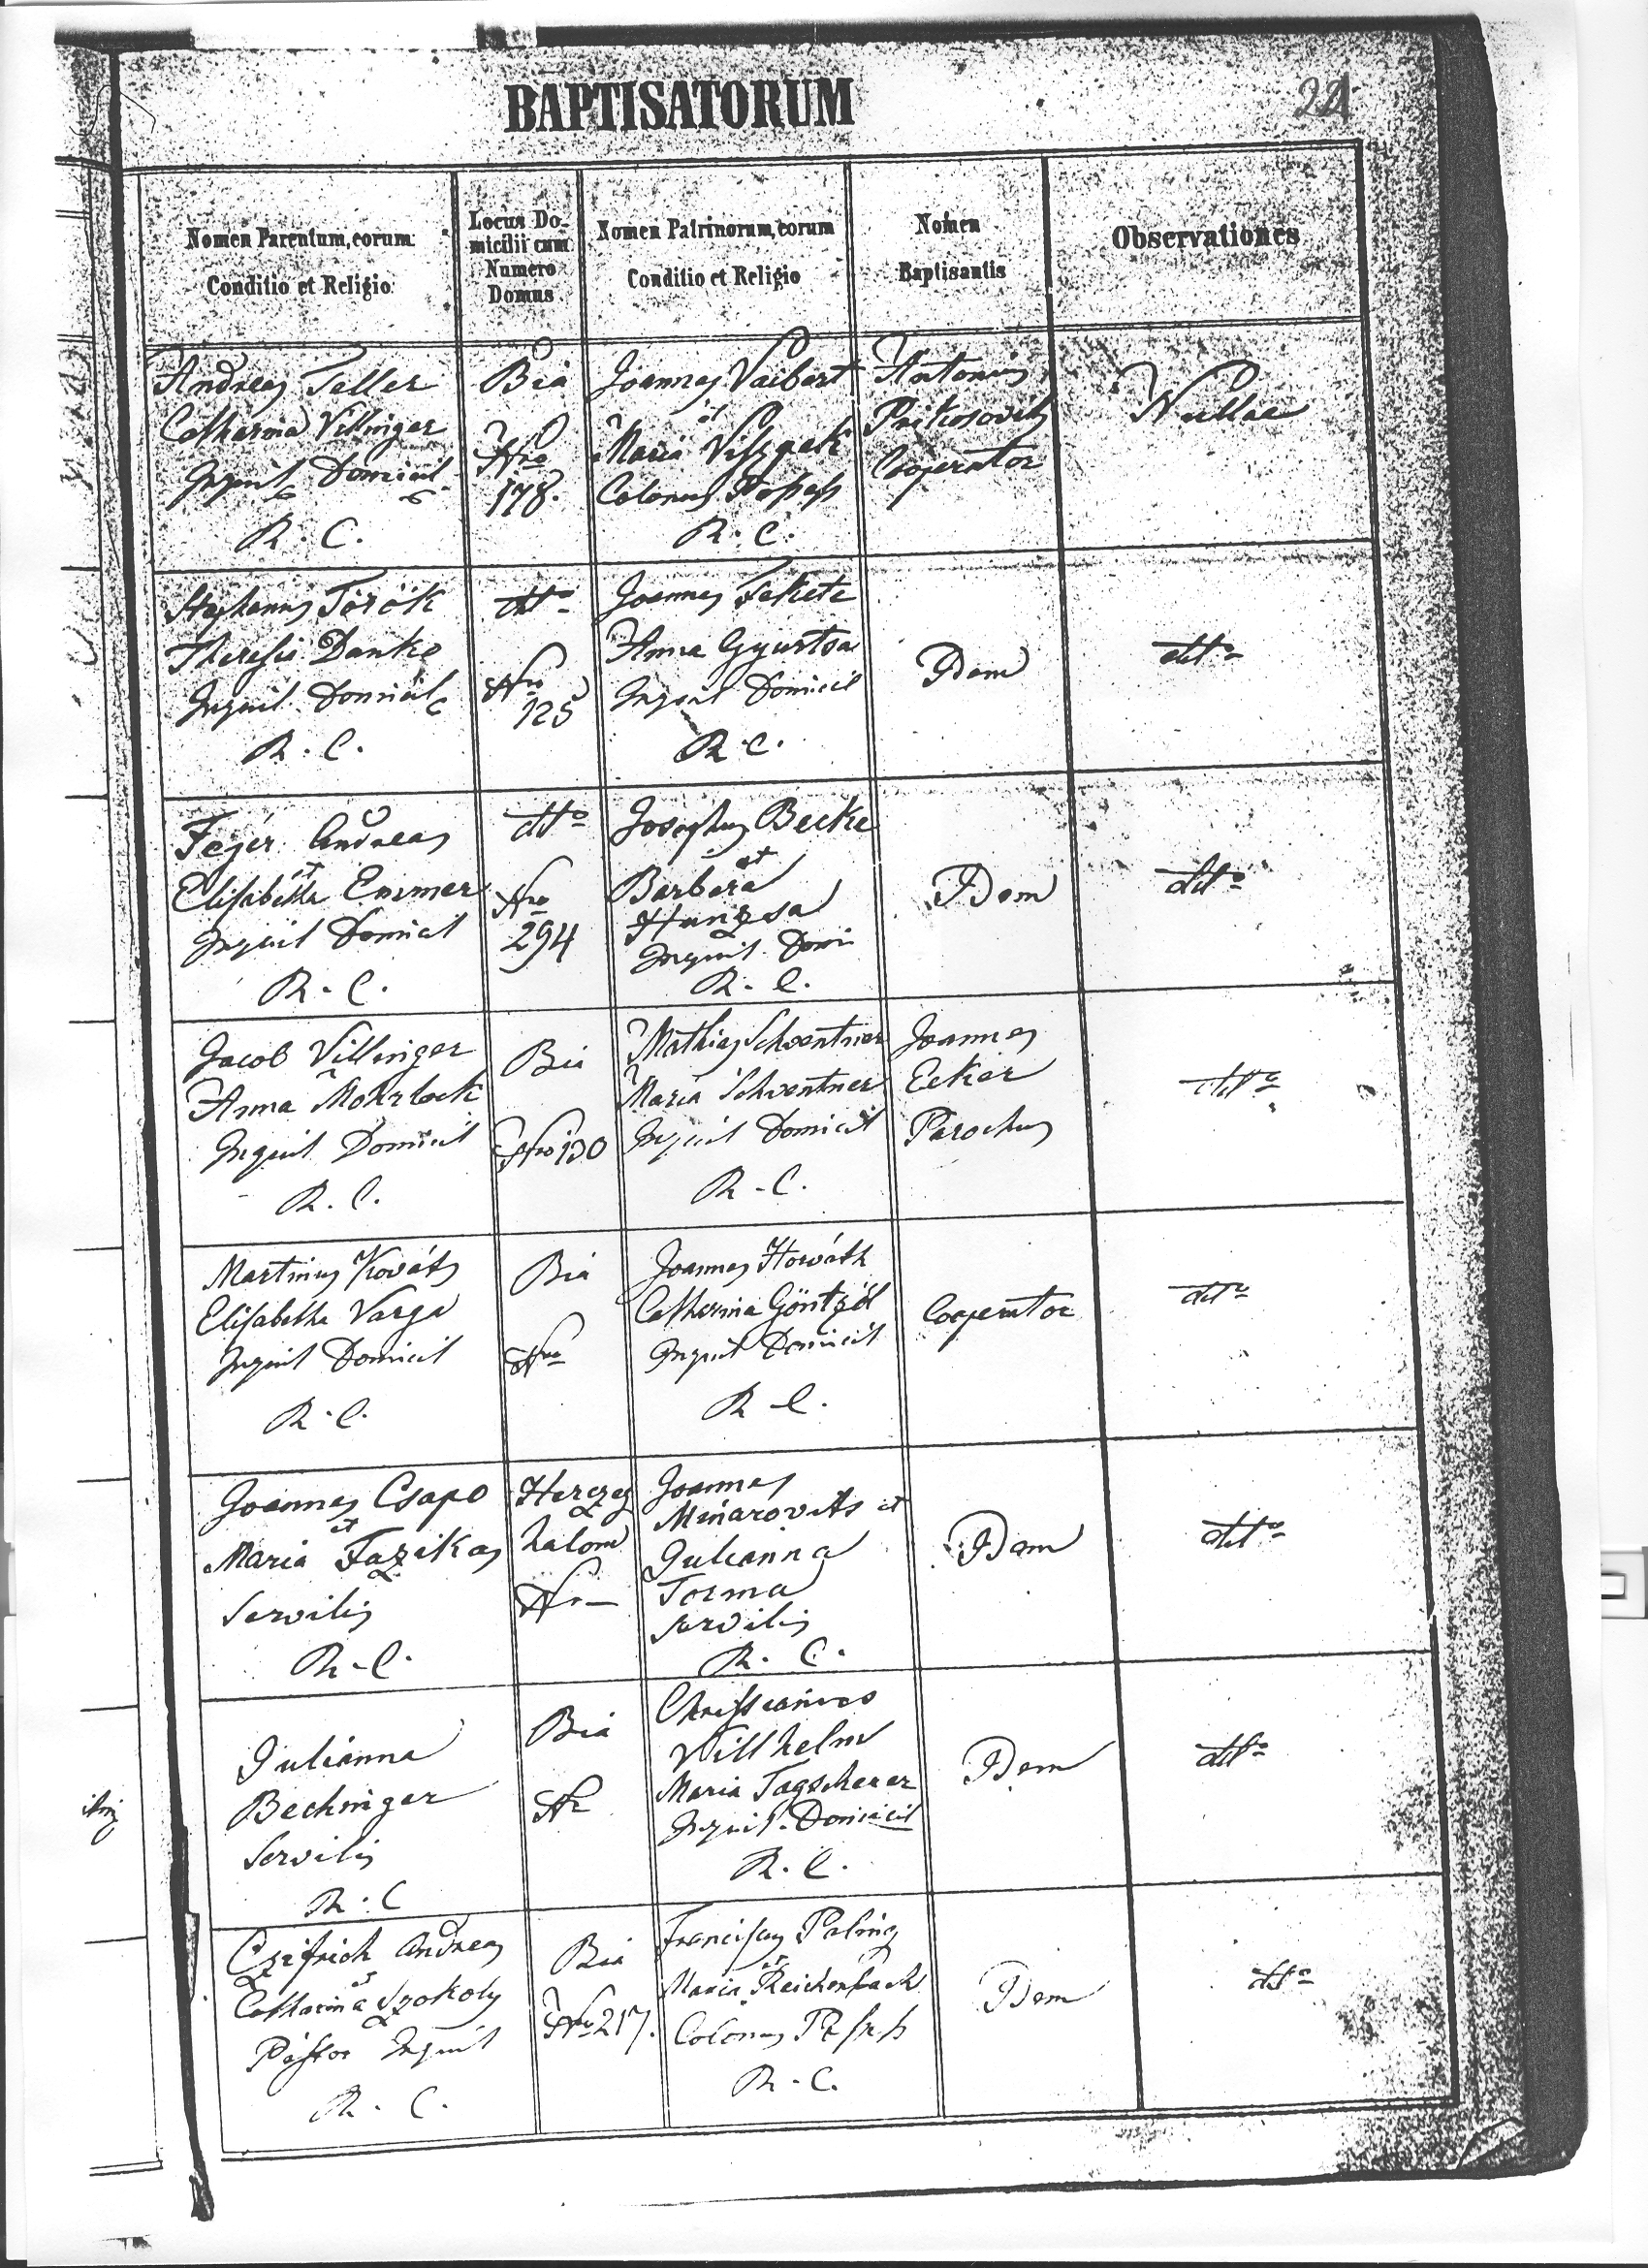 BAPTISATORUM
221
Nomen Parentum, eorum
Conditio et Religio
Locus Do-
micilii cum
Numero
Domus
Nomen Patrinorum, eorum
Conditio et Religio
Nomen
Baptisantis
Observationes
Andreas Teller
Catharina Villinger
Inquil Domicil
R. C.
Bia
Nro
178.
Joannes Vaibert
et
Maria
Colonus
R. C.
Antonius
Prikosovits
Cooperator
Nullae
Stephanus Török
Theresia Danko
Inquil Domicil
R. C.
dtto
Nro
125
Joannes Fekete
Anna Gyurtsa
Inquil Domicil
R. C.
Idem
dtto
Fejér Andreas
et
Elisabetha Emmer
Inquil Domicil
R. C.
dtto
Nro
294
Josephus Becke
et
Barbara
Hungsa
Inquil Domi
R. C.
Idem
dtto
Jacob Villinger
Anna Mohrlock
Inquil Domicil
R. C.
Bia
Nro 130
Mathias Schventner
Maria Schventner
Inquil Domicil
R. C.
Joannes
Ecker
Parochus
dtto
Martinus Kováts
Elisabetha Varga
Inquil Domicil
R. C.
Bia
Nro
Joannes Horváth
Catharina Göntzöl
Inquil Domicil
R. C.
Cooperator
dtto
Joannes Csapo
et
Maria Fazikas
Servilis
R. C.
Herczeg
halom
Nr
Joannes
Minarovits et
Julianna
Torma
servilis
R. C.
Idem
dtto
Julianna
Bechinger
Servilis
R. C
Bia
Nr
Christianus
Willhelm
Maria Tagscherer
Inquil. Domicil
R. C.
Idem
dtto
Czifrich Andreas
et
Catharina Szokoly
Pastor Inquil
R. C.
Bia
Nro 217.
Franciscus Paling
et
Maria Reichenbach
Colonus
R. C.
Idem
dtto